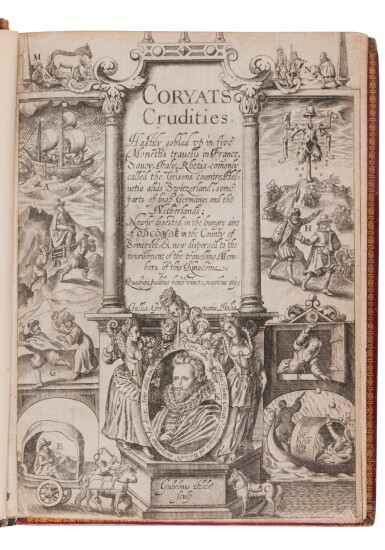 M
N
CORYATS
Crudities
Hastily gobled up in five
Moneths travells in France,
Savoy, Italy, Rhetia comonly
called the Grisons country, Hel-
vetia aliàs Switzerland, some
parts of high Germany, and the
Netherlands;
Newly digested in the hungry aire
of ODCOMBE in the County of
Somerset, & now dispersed to the
nourishment of the travelling Mem-
bers of this Kingdome.
Gallia
Germania
Italia
H
G
B
Gulielmus Hole
sculp